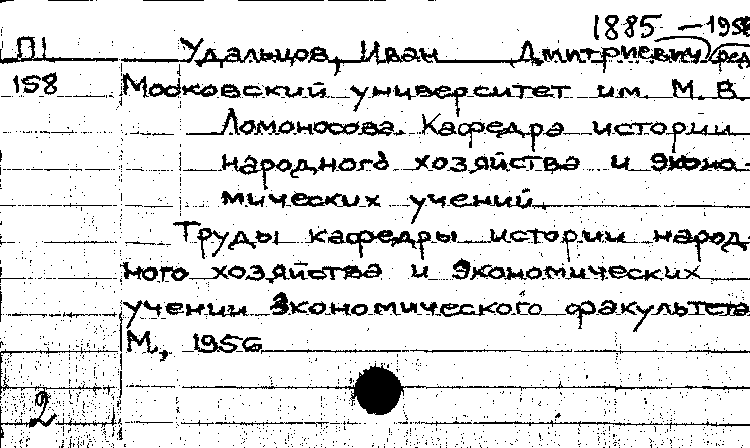 1885 – 1958
П1 Удальцов, Иван Дмитриевич (ред
158 Московский университет им. М. В.
Ломоносова. Кафедра истории
народного хозяйства и эконо-
мических учений.
Труды кафедры истории народ-
ного хозяйства и экономических
учений Экономического факультета
М., 1956
2